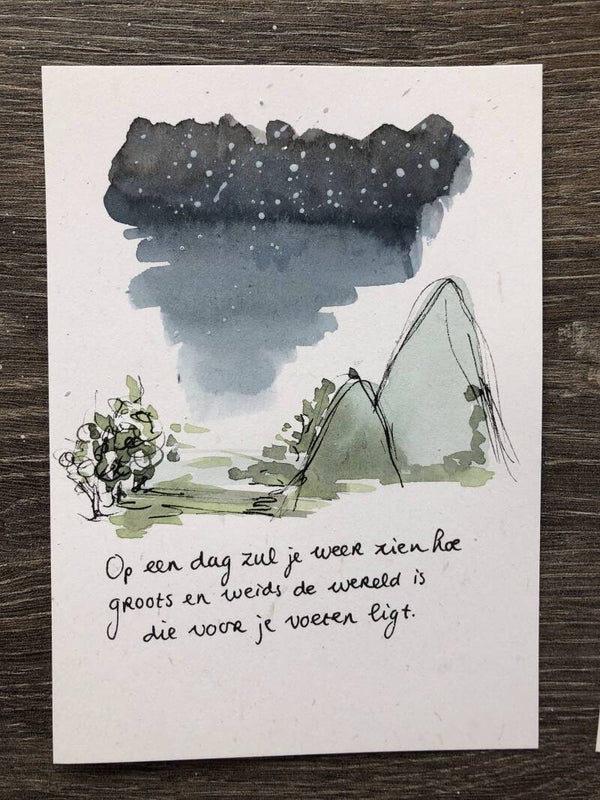 Op een dag zul je weer zien hoe
groots en weids de wereld is
die voor je voeten ligt.